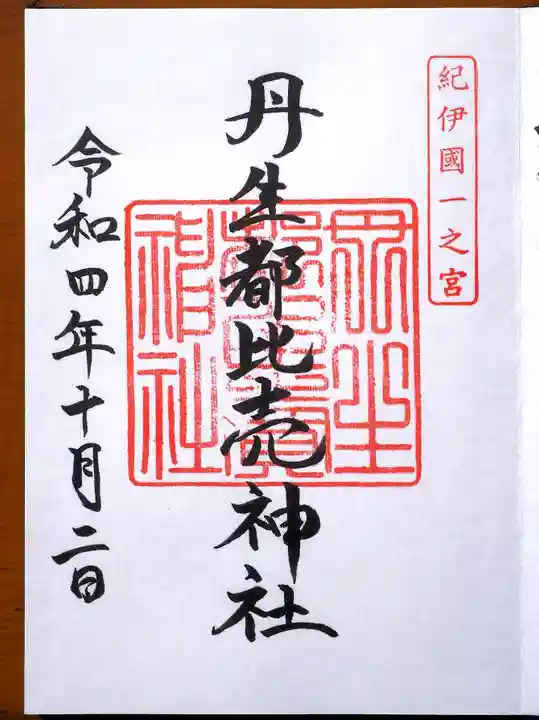 紀伊國一之宮
丹生都比売神社
丹生都比賣神社
令和四年十月二日